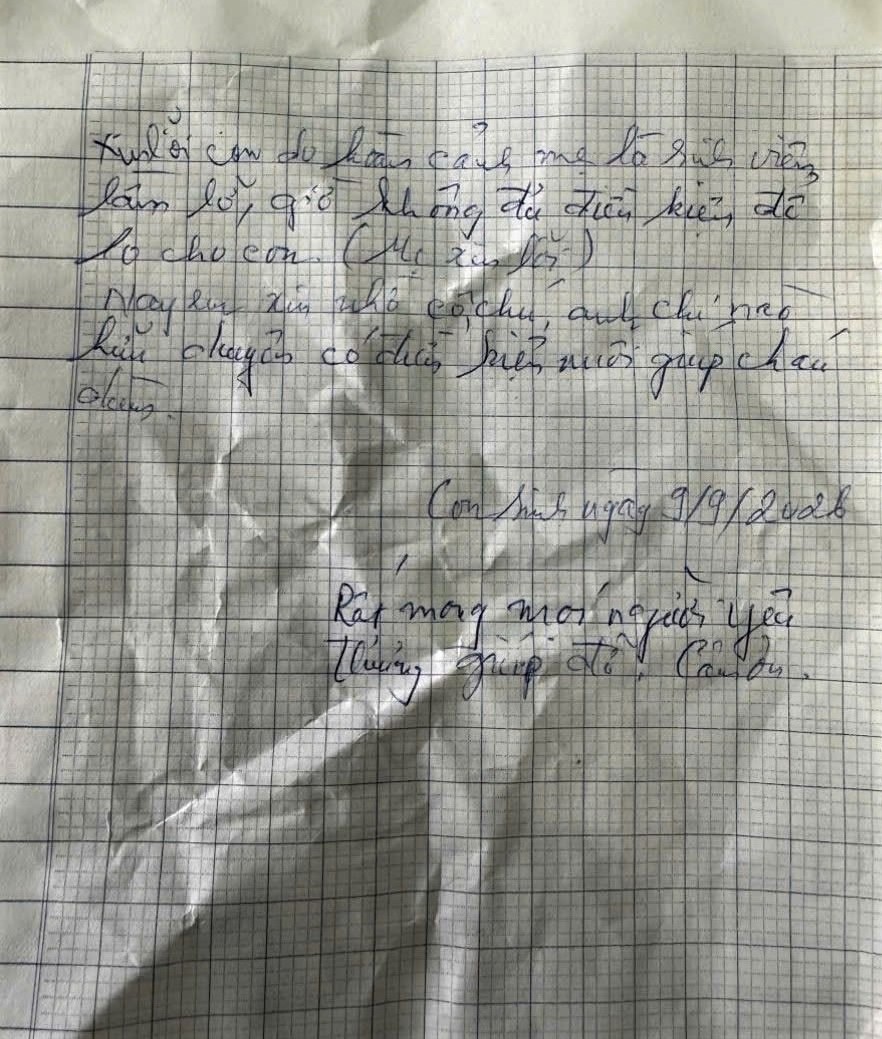 Xin lỗi con do hoàn cảnh mẹ là sinh viên
lầm lỡ, giờ không đủ điều kiện để
lo cho con. (Mẹ xin lỗi)
Nay em xin nhờ cô, chú, anh chị nào
hữu duyên có điều kiện nuôi giúp cháu
Con sinh ngày 9/9/2026
Rất mong mọi người yêu
thương giúp đỡ. Cảm ơn.